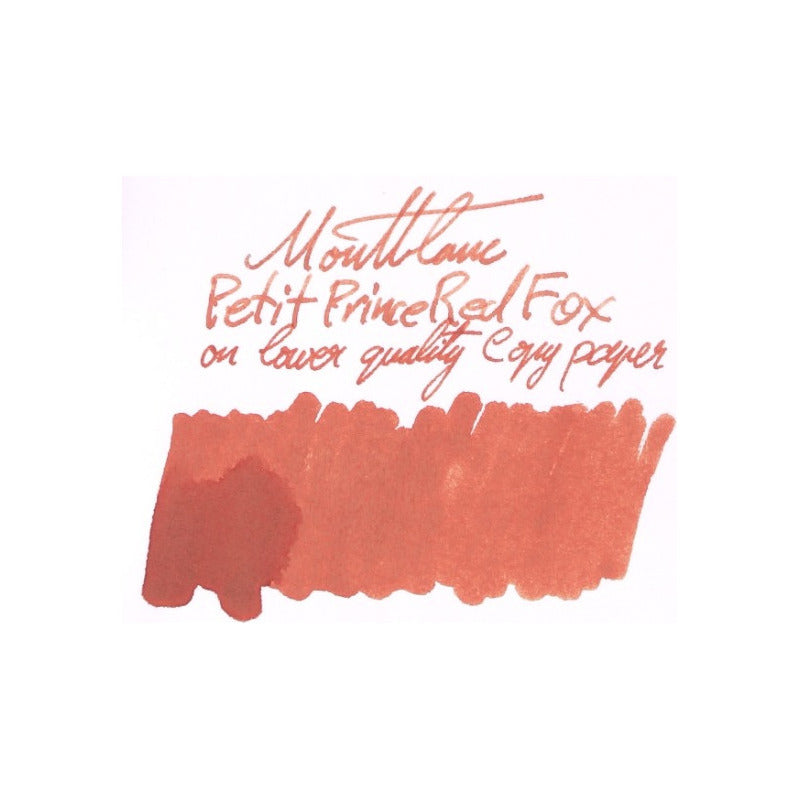 Montblanc
Petit Prince Red Fox
on lower quality Copy paper